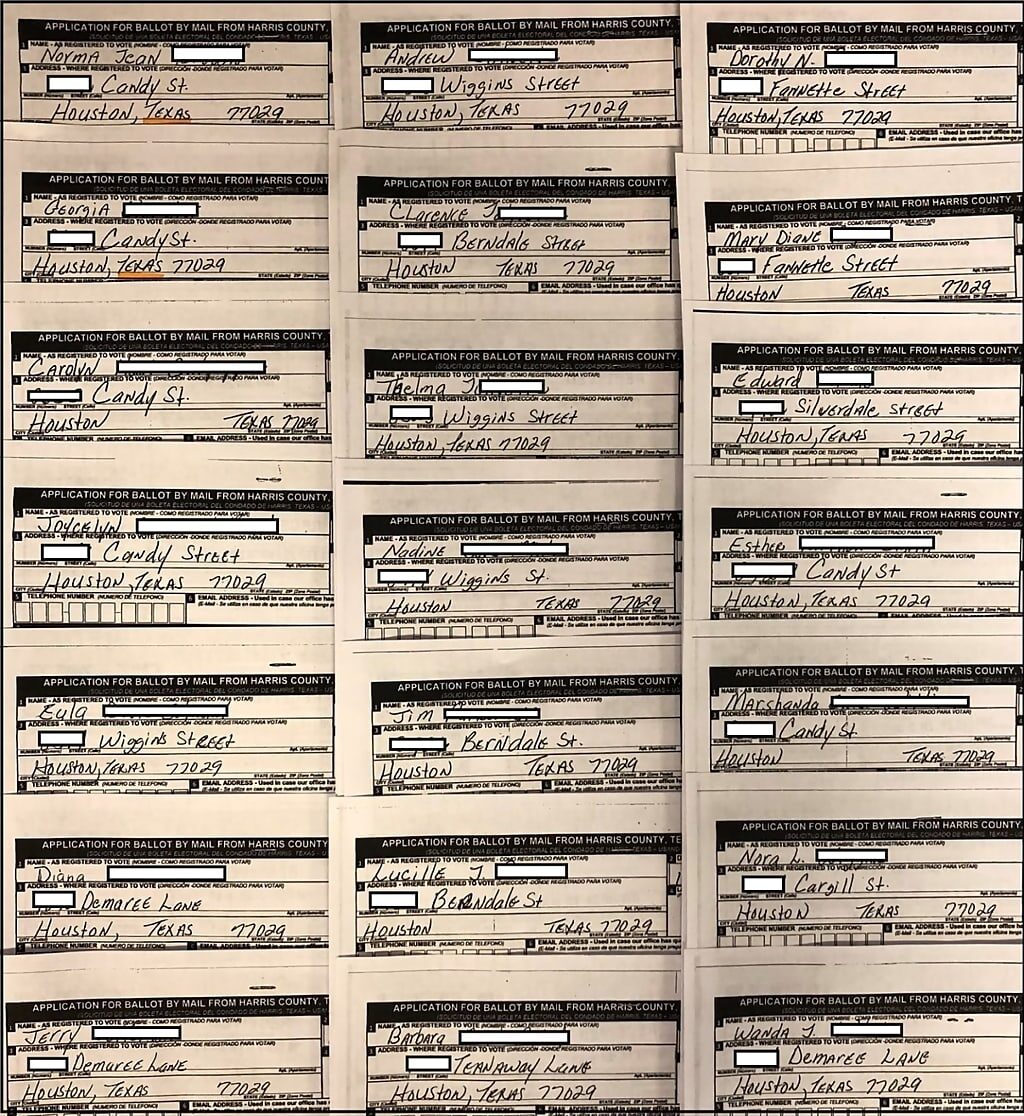 APPLICATION FOR BALLOT BY MAIL FROM HARRIS COUNTY,
NAME - AS REGISTERED TO VOTE (NOMBRE - COMO REGISTRADO PARA VOTAR)
Norma Jean
ADDRESS - WHERE REGISTERED TO VOTE (DIRECCIÓN -DONDE REGISTRADO PARA VOTAR)
Candy St.
Houston, TEXAS 77029
APPLICATION FOR BALLOT BY MAIL FROM HARRIS COUNTY,
NAME - AS REGISTERED TO VOTE (NOMBRE - COMO REGISTRADO PARA VOTAR)
Georgia
ADDRESS - WHERE REGISTERED TO VOTE (DIRECCIÓN -DONDE REGISTRADO PARA VOTAR)
Candy St.
Houston, TEXAS 77029
TELEPHONE NUMBER (NUMERO DE TELEFONO)
APPLICATION FOR BALLOT BY MAIL FROM HARRIS COUNTY,
NAME - AS REGISTERED TO VOTE (NOMBRE - COMO REGISTRADO PARA VOTAR)
Carolyn
ADDRESS - WHERE REGISTERED TO VOTE (DIRECCIÓN -DONDE REGISTRADO PARA VOTAR)
Candy St.
Houston TEXAS 77029
TELEPHONE NUMBER (NUMERO DE TELEFONO) EMAIL ADDRESS - Used in case our office has
APPLICATION FOR BALLOT BY MAIL FROM HARRIS COUNTY,
NAME - AS REGISTERED TO VOTE (NOMBRE - COMO REGISTRADO PARA VOTAR)
Joycelyn
ADDRESS - WHERE REGISTERED TO VOTE (DIRECCIÓN -DONDE REGISTRADO PARA VOTAR)
Candy Street
Houston, TEXAS 77029
TELEPHONE NUMBER (NUMERO DE TELEFONO) EMAIL ADDRESS - Used in case our office has
(E-Mail - Se utiliza en caso de que nuestra oficina tenga
APPLICATION FOR BALLOT BY MAIL FROM HARRIS COUNTY,
NAME - AS REGISTERED TO VOTE (NOMBRE - COMO REGISTRADO PARA VOTAR)
Eula
ADDRESS - WHERE REGISTERED TO VOTE (DIRECCIÓN -DONDE REGISTRADO PARA VOTAR)
Wiggins Street
Houston, TEXAS 77029
TELEPHONE NUMBER (NUMERO DE TELEFONO) EMAIL ADDRESS - Used in case our office has
APPLICATION FOR BALLOT BY MAIL FROM HARRIS COUNTY,
NAME - AS REGISTERED TO VOTE (NOMBRE - COMO REGISTRADO PARA VOTAR)
Diana
ADDRESS - WHERE REGISTERED TO VOTE (DIRECCIÓN -DONDE REGISTRADO PARA VOTAR)
Demaree Lane
Houston, TEXAS 77029
TELEPHONE NUMBER (NUMERO DE TELEFONO) EMAIL ADDRESS - Used in case our office has
APPLICATION FOR BALLOT BY MAIL FROM HARRIS COUNTY,
NAME - AS REGISTERED TO VOTE (NOMBRE - COMO REGISTRADO PARA VOTAR)
Jerry
ADDRESS - WHERE REGISTERED TO VOTE (DIRECCIÓN -DONDE REGISTRADO PARA VOTAR)
Demaree Lane
Houston, TEXAS 77029
APPLICATION FOR BALLOT BY MAIL FROM HARRIS COUNTY,
NAME - AS REGISTERED TO VOTE (NOMBRE - COMO REGISTRADO PARA VOTAR)
Andrew
ADDRESS - WHERE REGISTERED TO VOTE (DIRECCIÓN -DONDE REGISTRADO PARA VOTAR)
Wiggins Street
Houston, TEXAS 77029
APPLICATION FOR BALLOT BY MAIL FROM HARRIS COUNTY,
NAME - AS REGISTERED TO VOTE (NOMBRE - COMO REGISTRADO PARA VOTAR)
Clarence J.
ADDRESS - WHERE REGISTERED TO VOTE (DIRECCIÓN -DONDE REGISTRADO PARA VOTAR)
Berndale Street
Houston TEXAS 77029
TELEPHONE NUMBER (NUMERO DE TELEFONO) EMAIL ADDRESS - Used in case our office has
APPLICATION FOR BALLOT BY MAIL FROM HARRIS COUNTY,
NAME - AS REGISTERED TO VOTE (NOMBRE - COMO REGISTRADO PARA VOTAR)
Thelma J.
ADDRESS - WHERE REGISTERED TO VOTE (DIRECCIÓN -DONDE REGISTRADO PARA VOTAR)
Wiggins Street
Houston, Texas 77029
APPLICATION FOR BALLOT BY MAIL FROM HARRIS COUNTY,
NAME - AS REGISTERED TO VOTE (NOMBRE - COMO REGISTRADO PARA VOTAR)
Nadine
ADDRESS - WHERE REGISTERED TO VOTE (DIRECCIÓN -DONDE REGISTRADO PARA VOTAR)
Wiggins St.
Houston TEXAS 77029
TELEPHONE NUMBER (NUMERO DE TELEFONO) EMAIL ADDRESS - Used in case our office has
APPLICATION FOR BALLOT BY MAIL FROM HARRIS COUNTY,
NAME - AS REGISTERED TO VOTE (NOMBRE - COMO REGISTRADO PARA VOTAR)
Jim
ADDRESS - WHERE REGISTERED TO VOTE (DIRECCIÓN -DONDE REGISTRADO PARA VOTAR)
Berndale St.
Houston TEXAS 77029
TELEPHONE NUMBER (NUMERO DE TELEFONO) EMAIL ADDRESS - Used in case our office has
APPLICATION FOR BALLOT BY MAIL FROM HARRIS COUNTY, TE
NAME - AS REGISTERED TO VOTE (NOMBRE - COMO REGISTRADO PARA VOTAR)
Lucille J.
ADDRESS - WHERE REGISTERED TO VOTE (DIRECCIÓN -DONDE REGISTRADO PARA VOTAR)
Berndale St
Houston TEXAS 77029
TELEPHONE NUMBER (NUMERO DE TELEFONO) EMAIL ADDRESS - Used in case our office has
APPLICATION FOR BALLOT BY MAIL FROM HARRIS COUNTY,
NAME - AS REGISTERED TO VOTE (NOMBRE - COMO REGISTRADO PARA VOTAR)
Barbara
ADDRESS - WHERE REGISTERED TO VOTE (DIRECCIÓN -DONDE REGISTRADO PARA VOTAR)
Teanaway Lane
Houston, TEXAS 77029
APPLICATION FOR BALLOT BY MAIL FROM HARRIS COUNTY,
NAME - AS REGISTERED TO VOTE (NOMBRE - COMO REGISTRADO PARA VOTAR)
Dorothy N.
ADDRESS - WHERE REGISTERED TO VOTE (DIRECCIÓN -DONDE REGISTRADO PARA VOTAR)
Fannette Street
Houston, TEXAS 77029
TELEPHONE NUMBER (NUMERO DE TELEFONO) EMAIL ADDRESS - Used in case our office has
APPLICATION FOR BALLOT BY MAIL FROM HARRIS COUNTY, T
NAME - AS REGISTERED TO VOTE (NOMBRE - COMO REGISTRADO PARA VOTAR)
Mary Diane
ADDRESS - WHERE REGISTERED TO VOTE (DIRECCIÓN -DONDE REGISTRADO PARA VOTAR)
Fannette Street
Houston TEXAS 77029
APPLICATION FOR BALLOT BY MAIL FROM HARRIS COUNTY,
NAME - AS REGISTERED TO VOTE (NOMBRE - COMO REGISTRADO PARA VOTAR)
Edward
ADDRESS - WHERE REGISTERED TO VOTE (DIRECCIÓN -DONDE REGISTRADO PARA VOTAR)
Silverdale Street
Houston, TEXAS 77029
TELEPHONE NUMBER (NUMERO DE TELEFONO) EMAIL ADDRESS - Used in case our office has
APPLICATION FOR BALLOT BY MAIL FROM HARRIS COUNTY,
NAME - AS REGISTERED TO VOTE (NOMBRE - COMO REGISTRADO PARA VOTAR)
Esther
ADDRESS - WHERE REGISTERED TO VOTE (DIRECCIÓN -DONDE REGISTRADO PARA VOTAR)
Candy St
Houston, TEXAS 77029
TELEPHONE NUMBER (NUMERO DE TELEFONO) EMAIL ADDRESS - Used in case our office has
APPLICATION FOR BALLOT BY MAIL FROM HARRIS COUNTY, T
NAME - AS REGISTERED TO VOTE (NOMBRE - COMO REGISTRADO PARA VOTAR)
Marshanda
ADDRESS - WHERE REGISTERED TO VOTE (DIRECCIÓN -DONDE REGISTRADO PARA VOTAR)
Candy St
Houston TEXAS 77029
APPLICATION FOR BALLOT BY MAIL FROM HARRIS COUNTY, T
NAME - AS REGISTERED TO VOTE (NOMBRE - COMO REGISTRADO PARA VOTAR)
Nora L.
ADDRESS - WHERE REGISTERED TO VOTE (DIRECCIÓN -DONDE REGISTRADO PARA VOTAR)
Cargill St.
Houston TEXAS 77029
TELEPHONE NUMBER (NUMERO DE TELEFONO) EMAIL ADDRESS - Used in case our office has
APPLICATION FOR BALLOT BY MAIL FROM HARRIS COUNTY, T
NAME - AS REGISTERED TO VOTE (NOMBRE - COMO REGISTRADO PARA VOTAR)
Wanda J.
ADDRESS - WHERE REGISTERED TO VOTE (DIRECCIÓN -DONDE REGISTRADO PARA VOTAR)
Demaree Lane
Houston, TEXAS 77029
TELEPHONE NUMBER (NUMERO DE TELEFONO) EMAIL ADDRESS - Used in case our office has